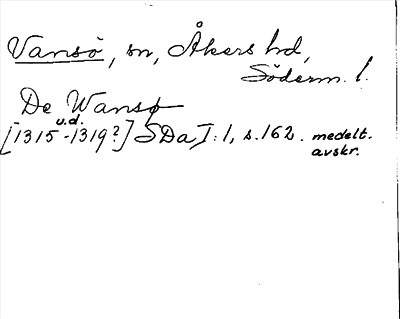 Vansö, sn, Åkers hd,
Söderm. l.
De Wansø
u.d.
[1315-1319?] SDa I:1, s.162. medelt.
avskr.